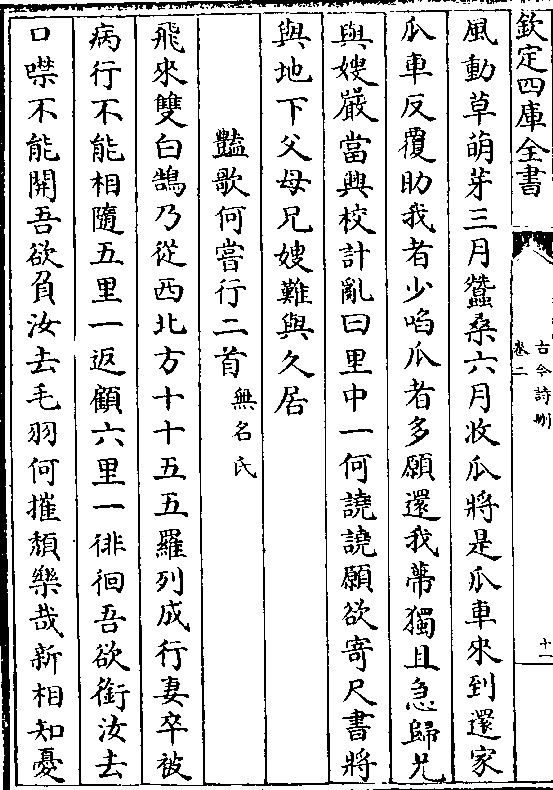 欽定四庫全書
古今詩刪
卷二
十一
風動草萌芽三月蠶桑六月收瓜將是瓜車來到還家
瓜車反覆助我者少啗瓜者多願還我蔕獨且急歸兄
與嫂嚴當興校計亂曰里中一何譊譊願欲寄尺書將
與地下父母兄嫂難與久居
豔歌何嘗行二首無名氏
飛來雙白鵠乃從西北方十十五五羅列成行妻卒被
病行不能相隨五里一返顧六里一徘徊吾欲銜汝去
口噤不能開吾欲負汝去毛羽何摧頽樂哉新相知憂